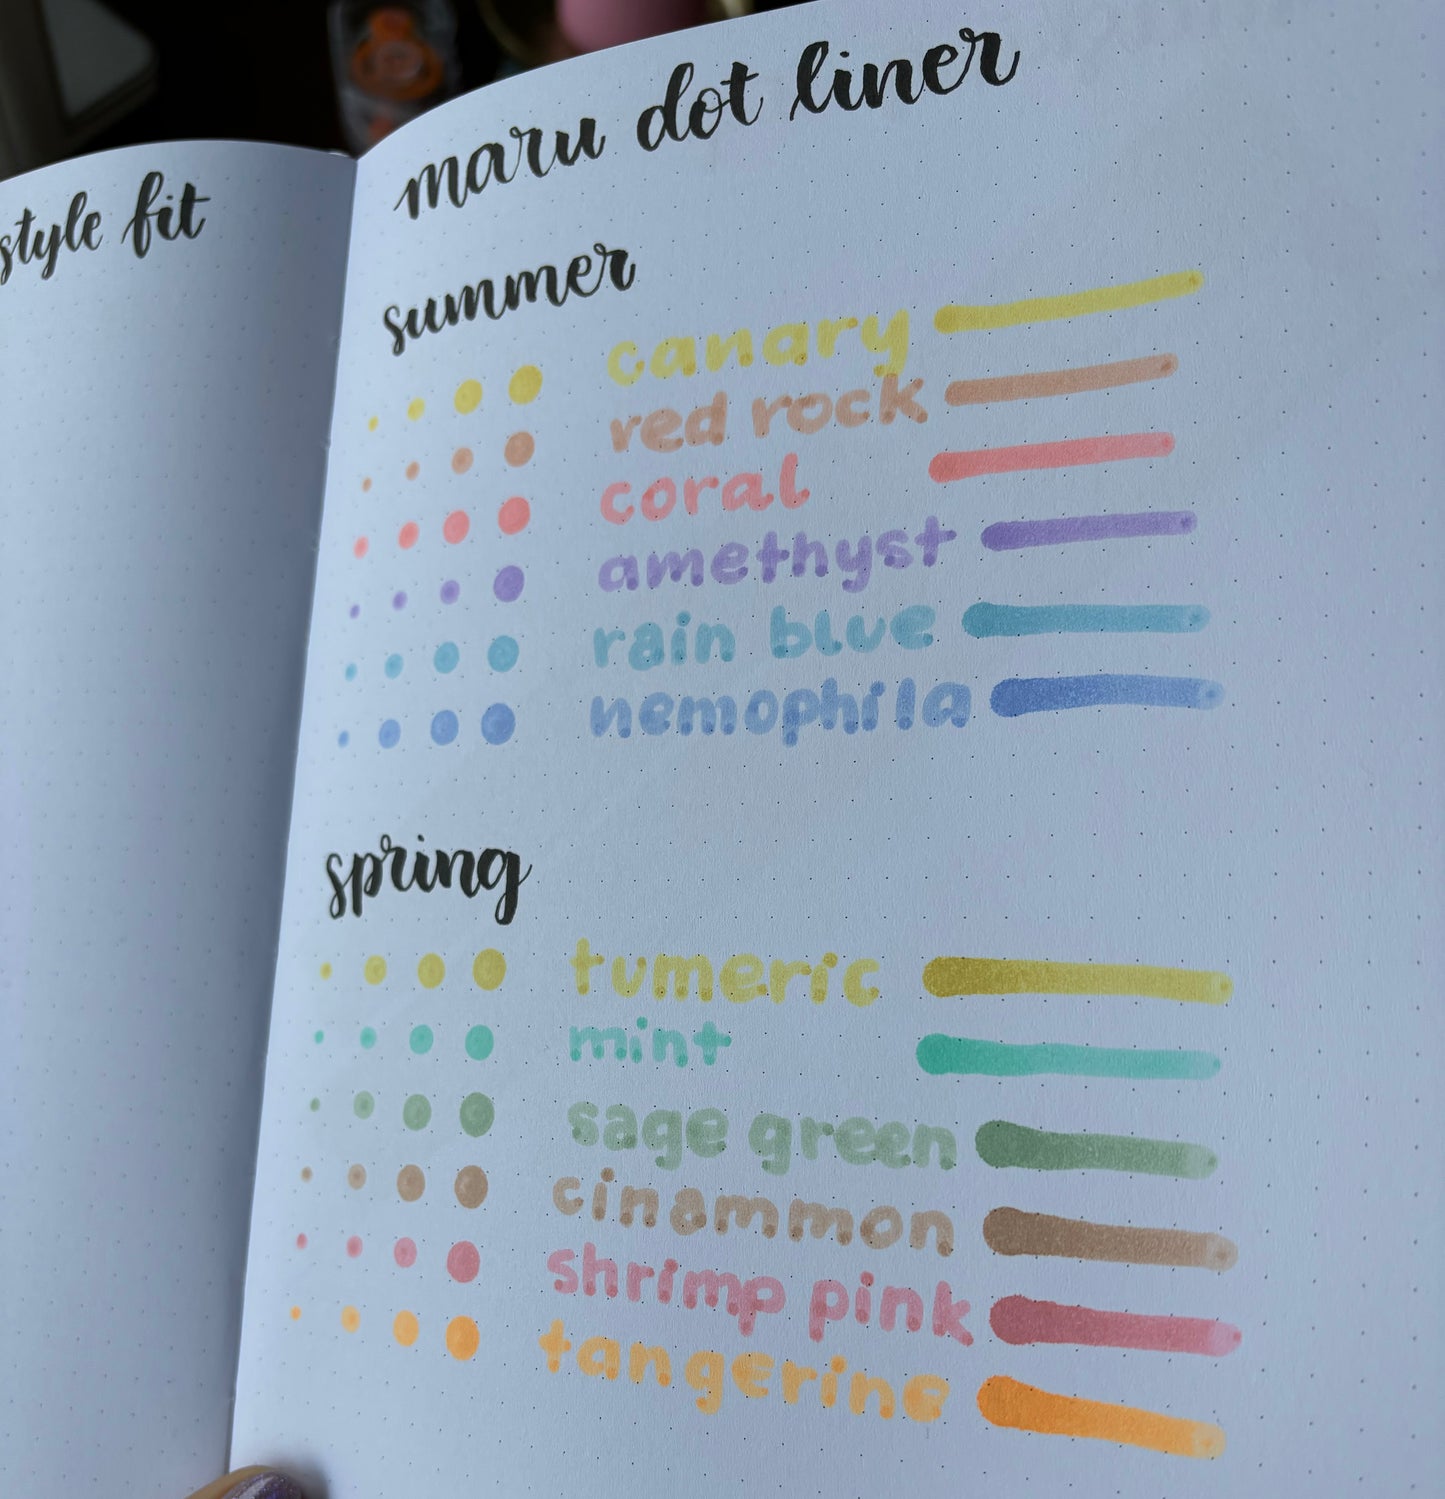 style fit
maru dot liner
summer
canary
red rock
coral
amethyst
rain blue
nemophila
spring
tumeric
mint
sage green
cinammon
shrimp pink
tangerine